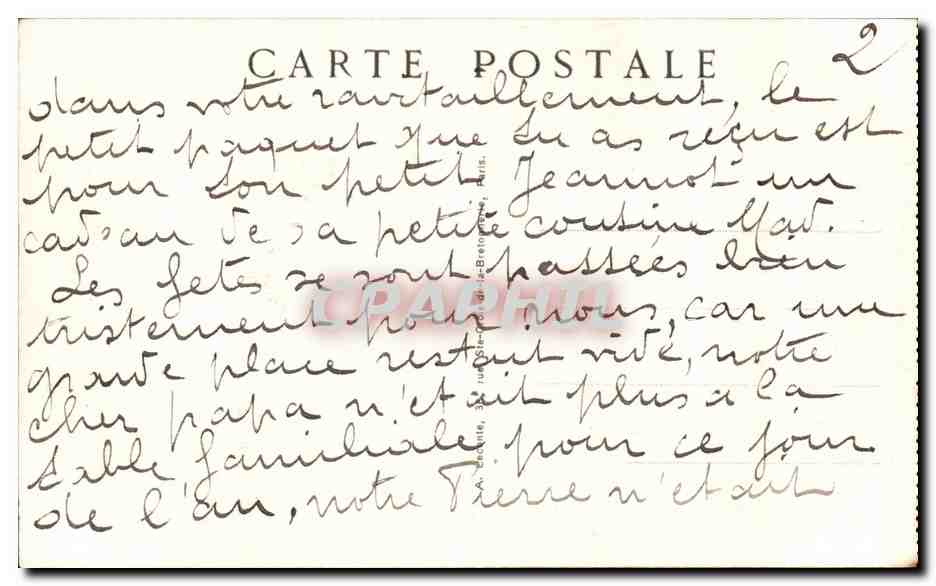 CARTE POSTALE
2
dans votre ravitaillement, le
petit paquet que tu as reçu est
pour ton petit Jeannot un
cadeau de sa petite cousine Mad.
Les fetes se sont passées bien
tristement pour nous, car une
grande place restait vide, notre
cher papa n'etait plus a la
table familiale pour ce jour
de l'an, notre Pierre n'etait
rue Ste-Croix-de-la-Bretonnerie, Paris.
CPAPHIL